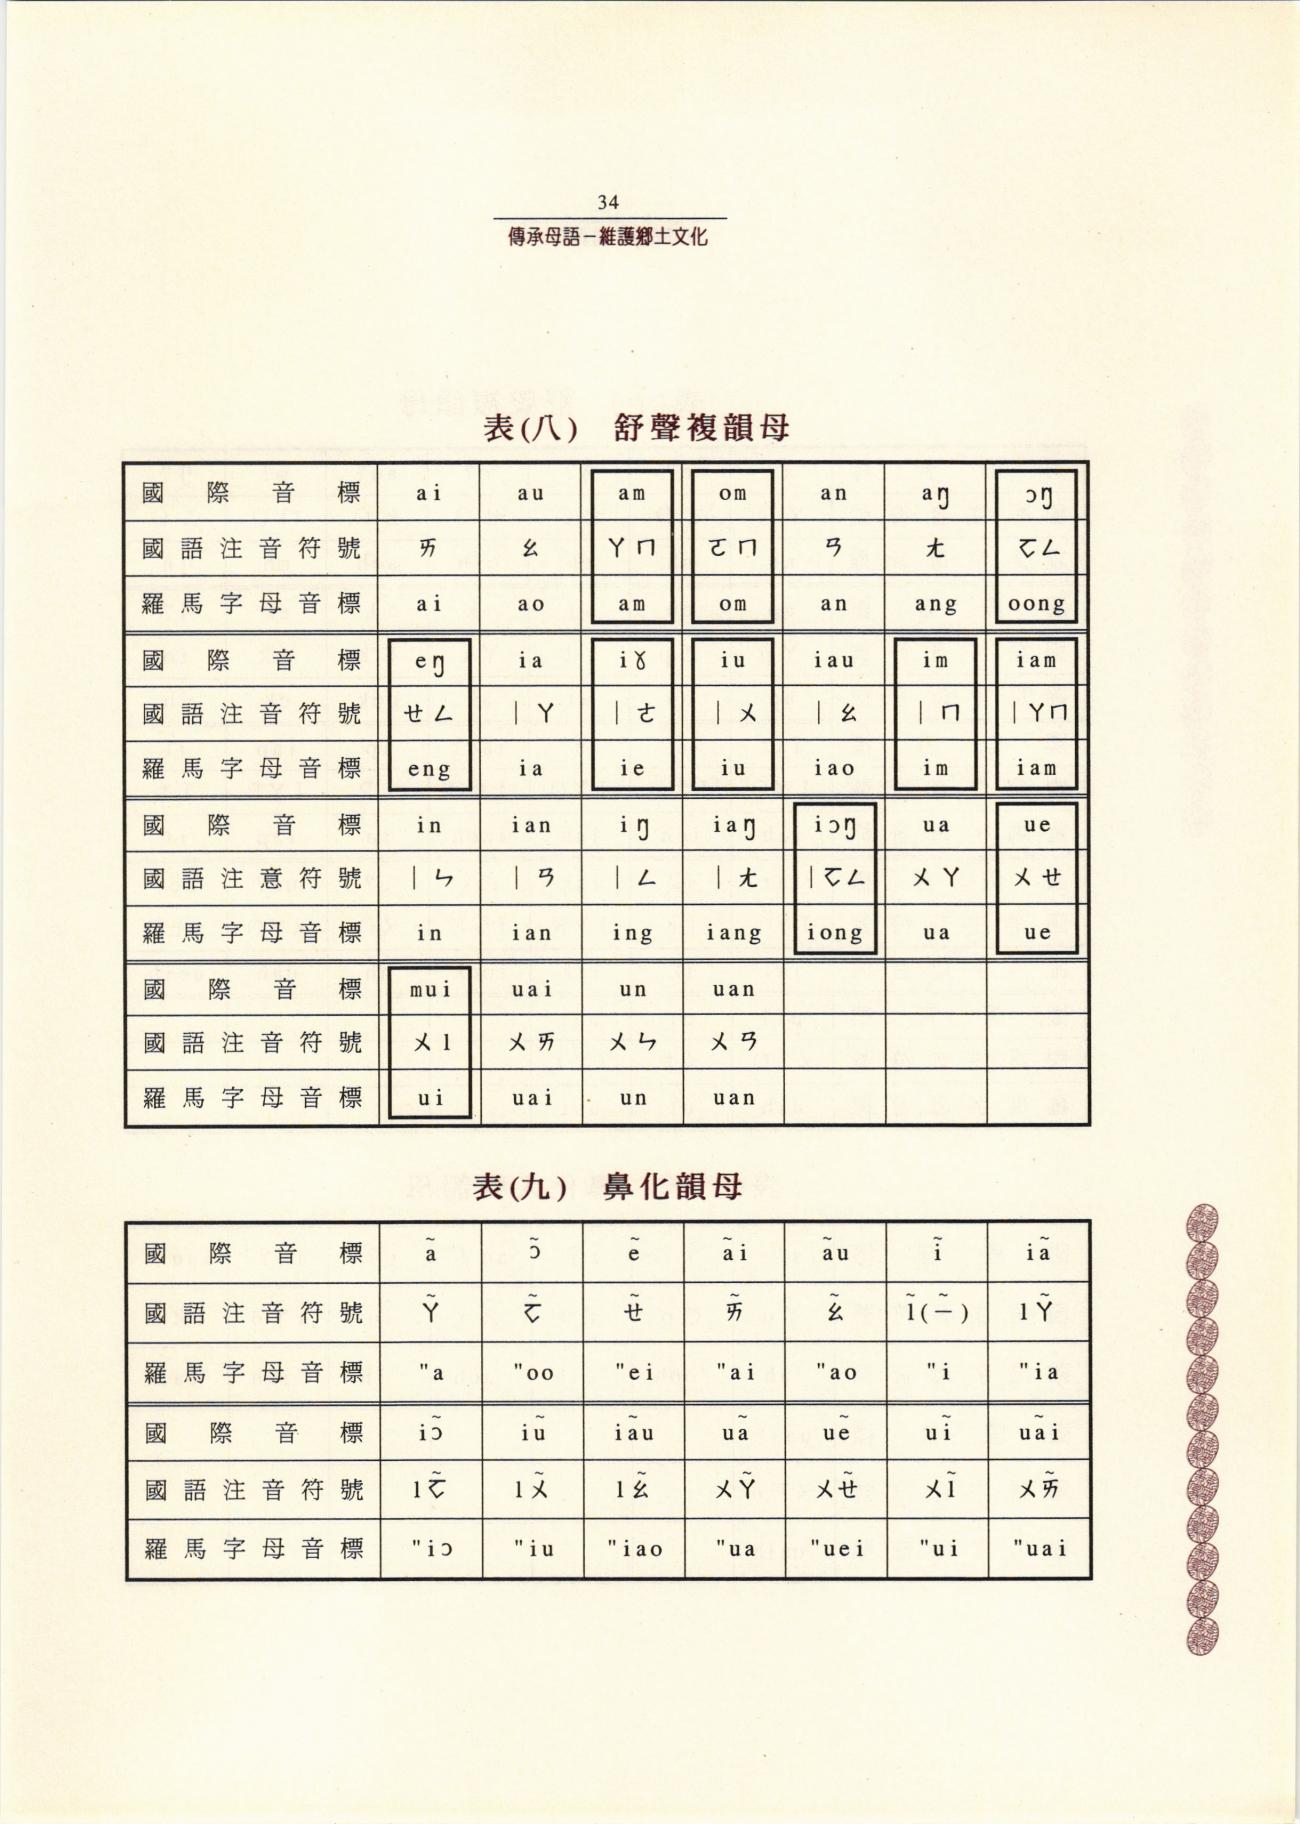 34
傳承母語－維護鄉土文化
表(八) 舒聲複韻母
國際音標 ai au am om an aŋ ɔŋ
國語注音符號 ㄞ ㄠ ㄚㄇ ㄛㄇ ㄢ ㄤ ㄛㄥ
羅馬字母音標 ai ao am om an ang oong
國際音標 eŋ ia iɤ iu iau im iam
國語注音符號 ㄝㄥ ㄧㄚ ㄧㄜ ㄧㄨ ㄧㄠ ㄧㄇ ㄧㄚㄇ
羅馬字母音標 eng ia ie iu iao im iam
國際音標 in ian iŋ iaŋ iɔŋ ua ue
國語注意符號 ㄧㄣ ㄧㄢ ㄧㄥ ㄧㄤ ㄧㄛㄥ ㄨㄚ ㄨㄝ
羅馬字母音標 in ian ing iang iong ua ue
國際音標 mui uai un uan
國語注音符號 ㄨl ㄨㄞ ㄨㄣ ㄨㄢ
羅馬字母音標 ui uai un uan
表(九) 鼻化韻母
國際音標 ã ɔ̃ ẽ ãi ãu ĩ iã
國語注音符號 ㄚ̃ ㄛ̃ ㄝ̃ ㄞ̃ ㄠ̃ l̃(一̃) lㄚ̃
羅馬字母音標 "a "oo "ei "ai "ao "i "ia
國際音標 iɔ̃ iũ iãu uã uẽ uĩ uãi
國語注音符號 lㄛ̃ lㄨ̃ lㄠ̃ ㄨㄚ̃ ㄨㄝ̃ ㄨl̃ ㄨㄞ̃
羅馬字母音標 "iɔ "iu "iao "ua "uei "ui "uai